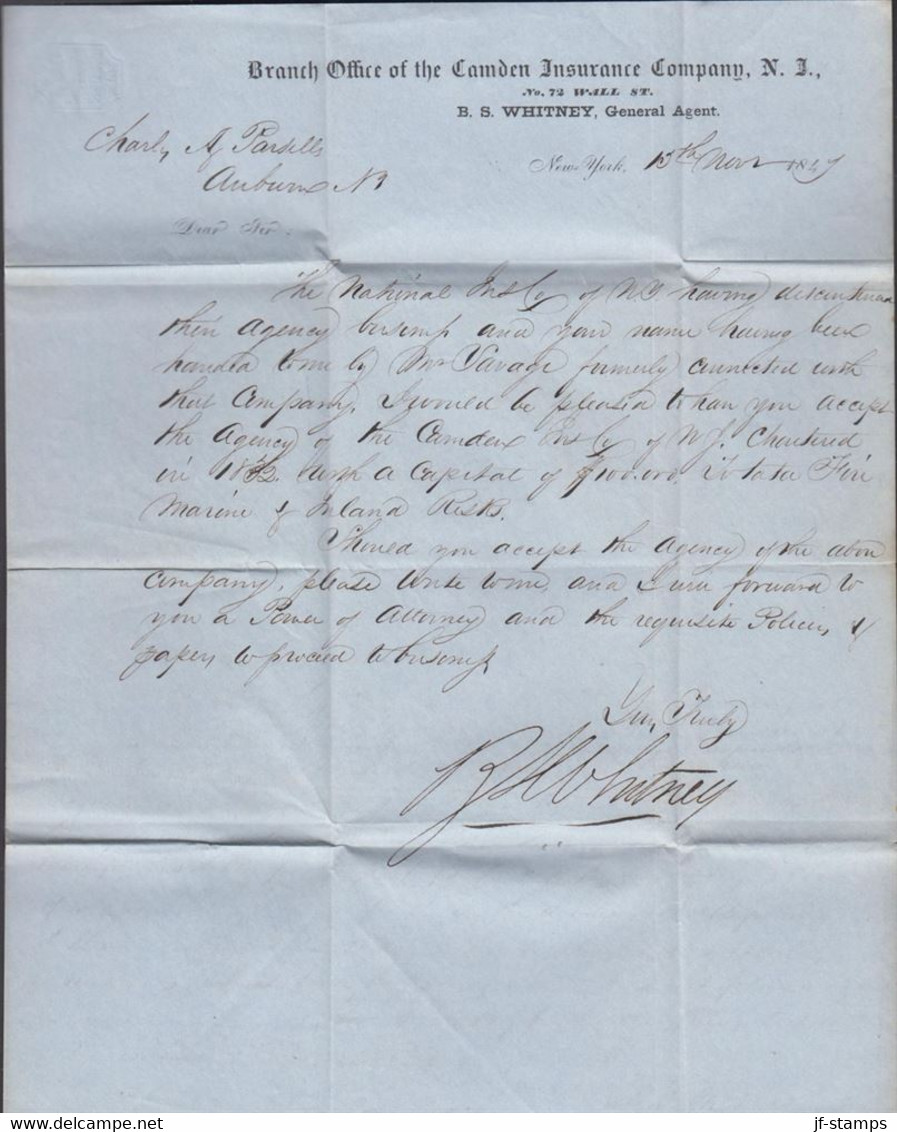 Branch Office of the Camden Insurance Company, N. J.,
No. 72 WALL ST.
B. S. WHITNEY, General Agent.
Charles A Parsells
Auburn NY
New-York, 13th Novr 1847
Dear Sir.
The National Ins Co of NY. having discontinued
their Agency business and your name having been
handed to me by Mr Savage formerly connected with
that Company, I would be pleased to have you accept
the Agency of the Camden Ins Co of N J. Chartered
in 1832. with a Capital of $100,000, to take Fire
Marine & Inland Risks.
Should you accept the Agency of the above
Company, please write to me, and I will forward to
you a Power of Attorney and the requisite Policies, &
papers to proceed to business
Yours Truly
B S Whitney
jf-stamps